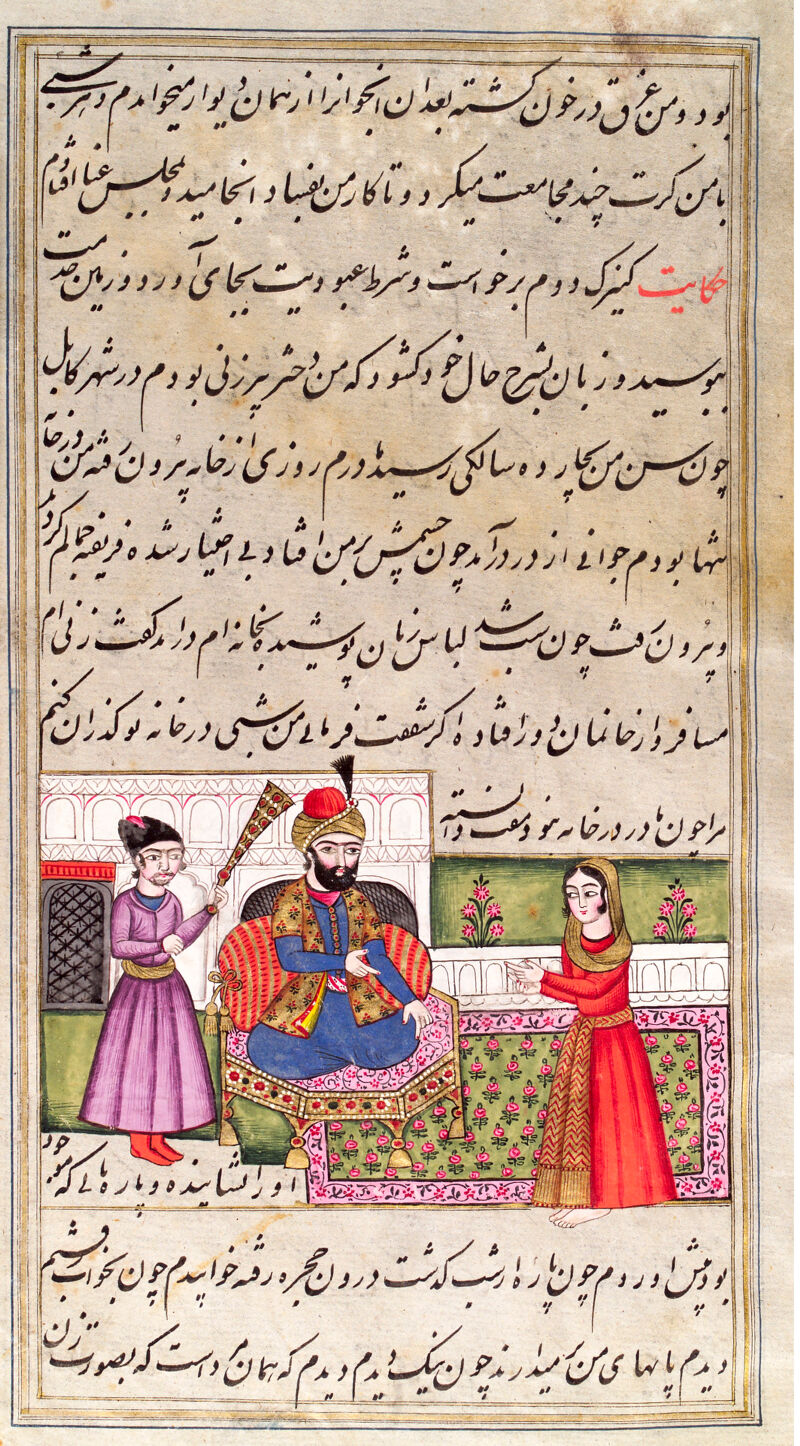 بود و من غرق در خون گشته بعد ان انجوانرا از همان دیوار میخواندم و هر شبی
با من کرت چند مجامعت میکرد و تا کار من بفساد انجامید و مجلس غنا افتادم
حکایت کنیزک دوم برخواست و شرط عبودیت بجای آورد و زمین خدمت
ببوسید و زبان بشرح حال خود کشود که من دختر پیرزنی بودم در شهر کابل
چون سن من بچارده سالکی رسید مادرم روزی از خانه بیرون رفته من در خانه
تنها بودم جوانی از در درآمد چون چشمش بر من افتاد بی اختیار شده فریفته جمالم کردید
و بیرون رفت چون شب شد لباس زنان پوشیده بخانه ام درآمد کفت زنی ام
مسافر و از خانمان دور افتاده اکر شفقت فرمائی من شبی در خانه تو کذران کنم
مرا چون مادر در خانه نبود مغتنم دانسته
او را نشاینده و پاره نانی که موجود
بود پیش اوردم چون پاره از شب کذشت درون حجره رفته خوابیدم چون بخواب رفتیم
دیدم پایهای من بر میدارند چون نیک دیدم دیدم که همان مرد است که بصورت زن